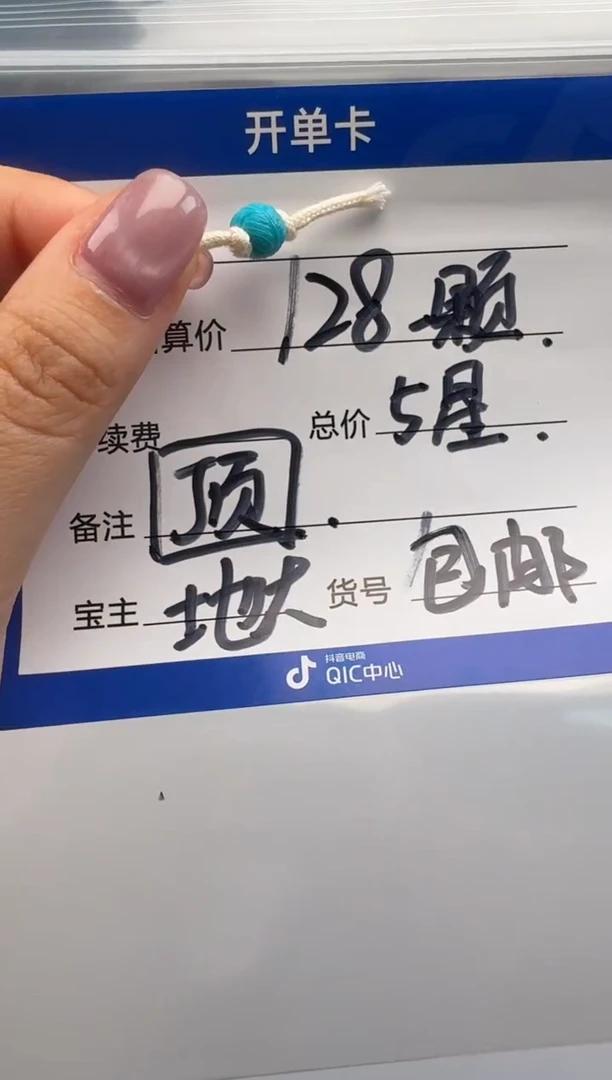 开单卡
算价 128颗.
续费 总价 5星.
备注 顶.
宝主 地火 货号 包邮
抖音电商
QIC中心